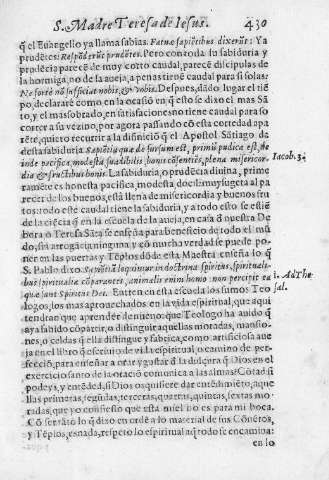 S. Madre Teresa de Iesus. 430
q̃ el Euangelio ya llama sabias. Fatuæ sapiẽtibus dixerũt: Ya
prudẽtes: Respõderũt prudẽtes. Pero con toda su sabiduria y
prudẽcia parecẽ de muy corto caudal, parecẽ discipulas de
la hormiga, no de la aueja, apenas tienẽ caudal para si solas:
Ne forte nõ sufficiat nobis, & vobis. Despues, dãdo lugar el tiẽ
po, declararõ como en la ocasiõ en q̃ esto se dixo el mas Sã
to, y el mas sobrado, en satisfacciones no tiene caudal para so
correr a su vezino, por agora passando cõ esta cortedad apa
rẽte, quiero escurrir a la difinicíõ q̃ el Apostol. Sãtiago da
desta sabiduria. Sapiẽtia quæ de sursum est, primũ pudica est, de
inde pacifica, modesta suadibilis, bonis cõsentiẽs, plena misericor
dia & fructibus bonis. La sabiduria, o prudẽcia diuina, prime
ramẽte es honesta pacifica, modesta docil: muy sugeta al pa
recer de los buenos, està llena de misericordia y buenos fru
tos: todo este caudal tiene la sabiduria, y a todo esto se estiẽ
de la ciẽcia q̃ en la escuela de la aueja, en casa ð nuestra De
bora o Teresa Sãta se enseña para beneficio de todo el mũ
do, sin arrogãcia ninguna y cõ mucha verdad se puede po-
ner en las puertas y Tẽplos dõde esta Maestra enseña lo q̃
S. Pablo dixo. Sapiẽtia loquimur in doctrina spiritus, spirituali-
bus spiritualia cõparantes, animalis enim homo non percipit ea
quæ sunt Spiritus Dei. Entren en esta escuela los sumos Teo
logos, los mas aprouechados en la vida espiritual, que aqui
tendran que aprender de nueuo: que Teologo ha auido q̃
aya sabido cõpartir, o distinguir aquellas moradas, mansio-
nes, o celdas q̃ ella distingue y fabrica, como artificiosa aue
ja en el libro q̃ escriuio de vida espiritual, o camino de per-
feccíõ, para enseñar a orar y gustar ð la dulçura q̃ Dios en el
exercicio santo de la oracíõ comunica a las almas: Cõtad si
podeys, y entẽded, si Dios os quisiere dar entẽdimiẽto, aque
llas primeras, segũdas, terceras, quartas, quintas, sextas mo
radas, que yo confiesso que esta miel no es para mi boca.
Cõ ser tãto lo q̃ dixo en ordẽ a lo material de sus Cõuẽtos,
y Tẽplos, es nada, respeto lo espiritual aq̃ todo se encamina:
en lo
Iacob. 3.